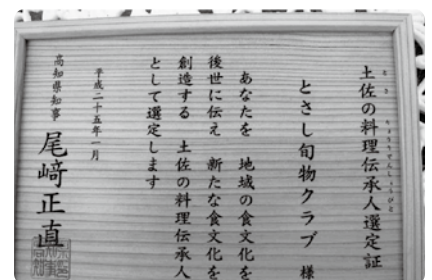 土佐の料理伝承人選定証
とさし旬物クラブ 様
あなたを 地域の食文化を
後世に伝え 新たな食文化を
創造する 土佐の料理伝承人
として選定します
平成二十五年一月
高知県知事 尾﨑正直